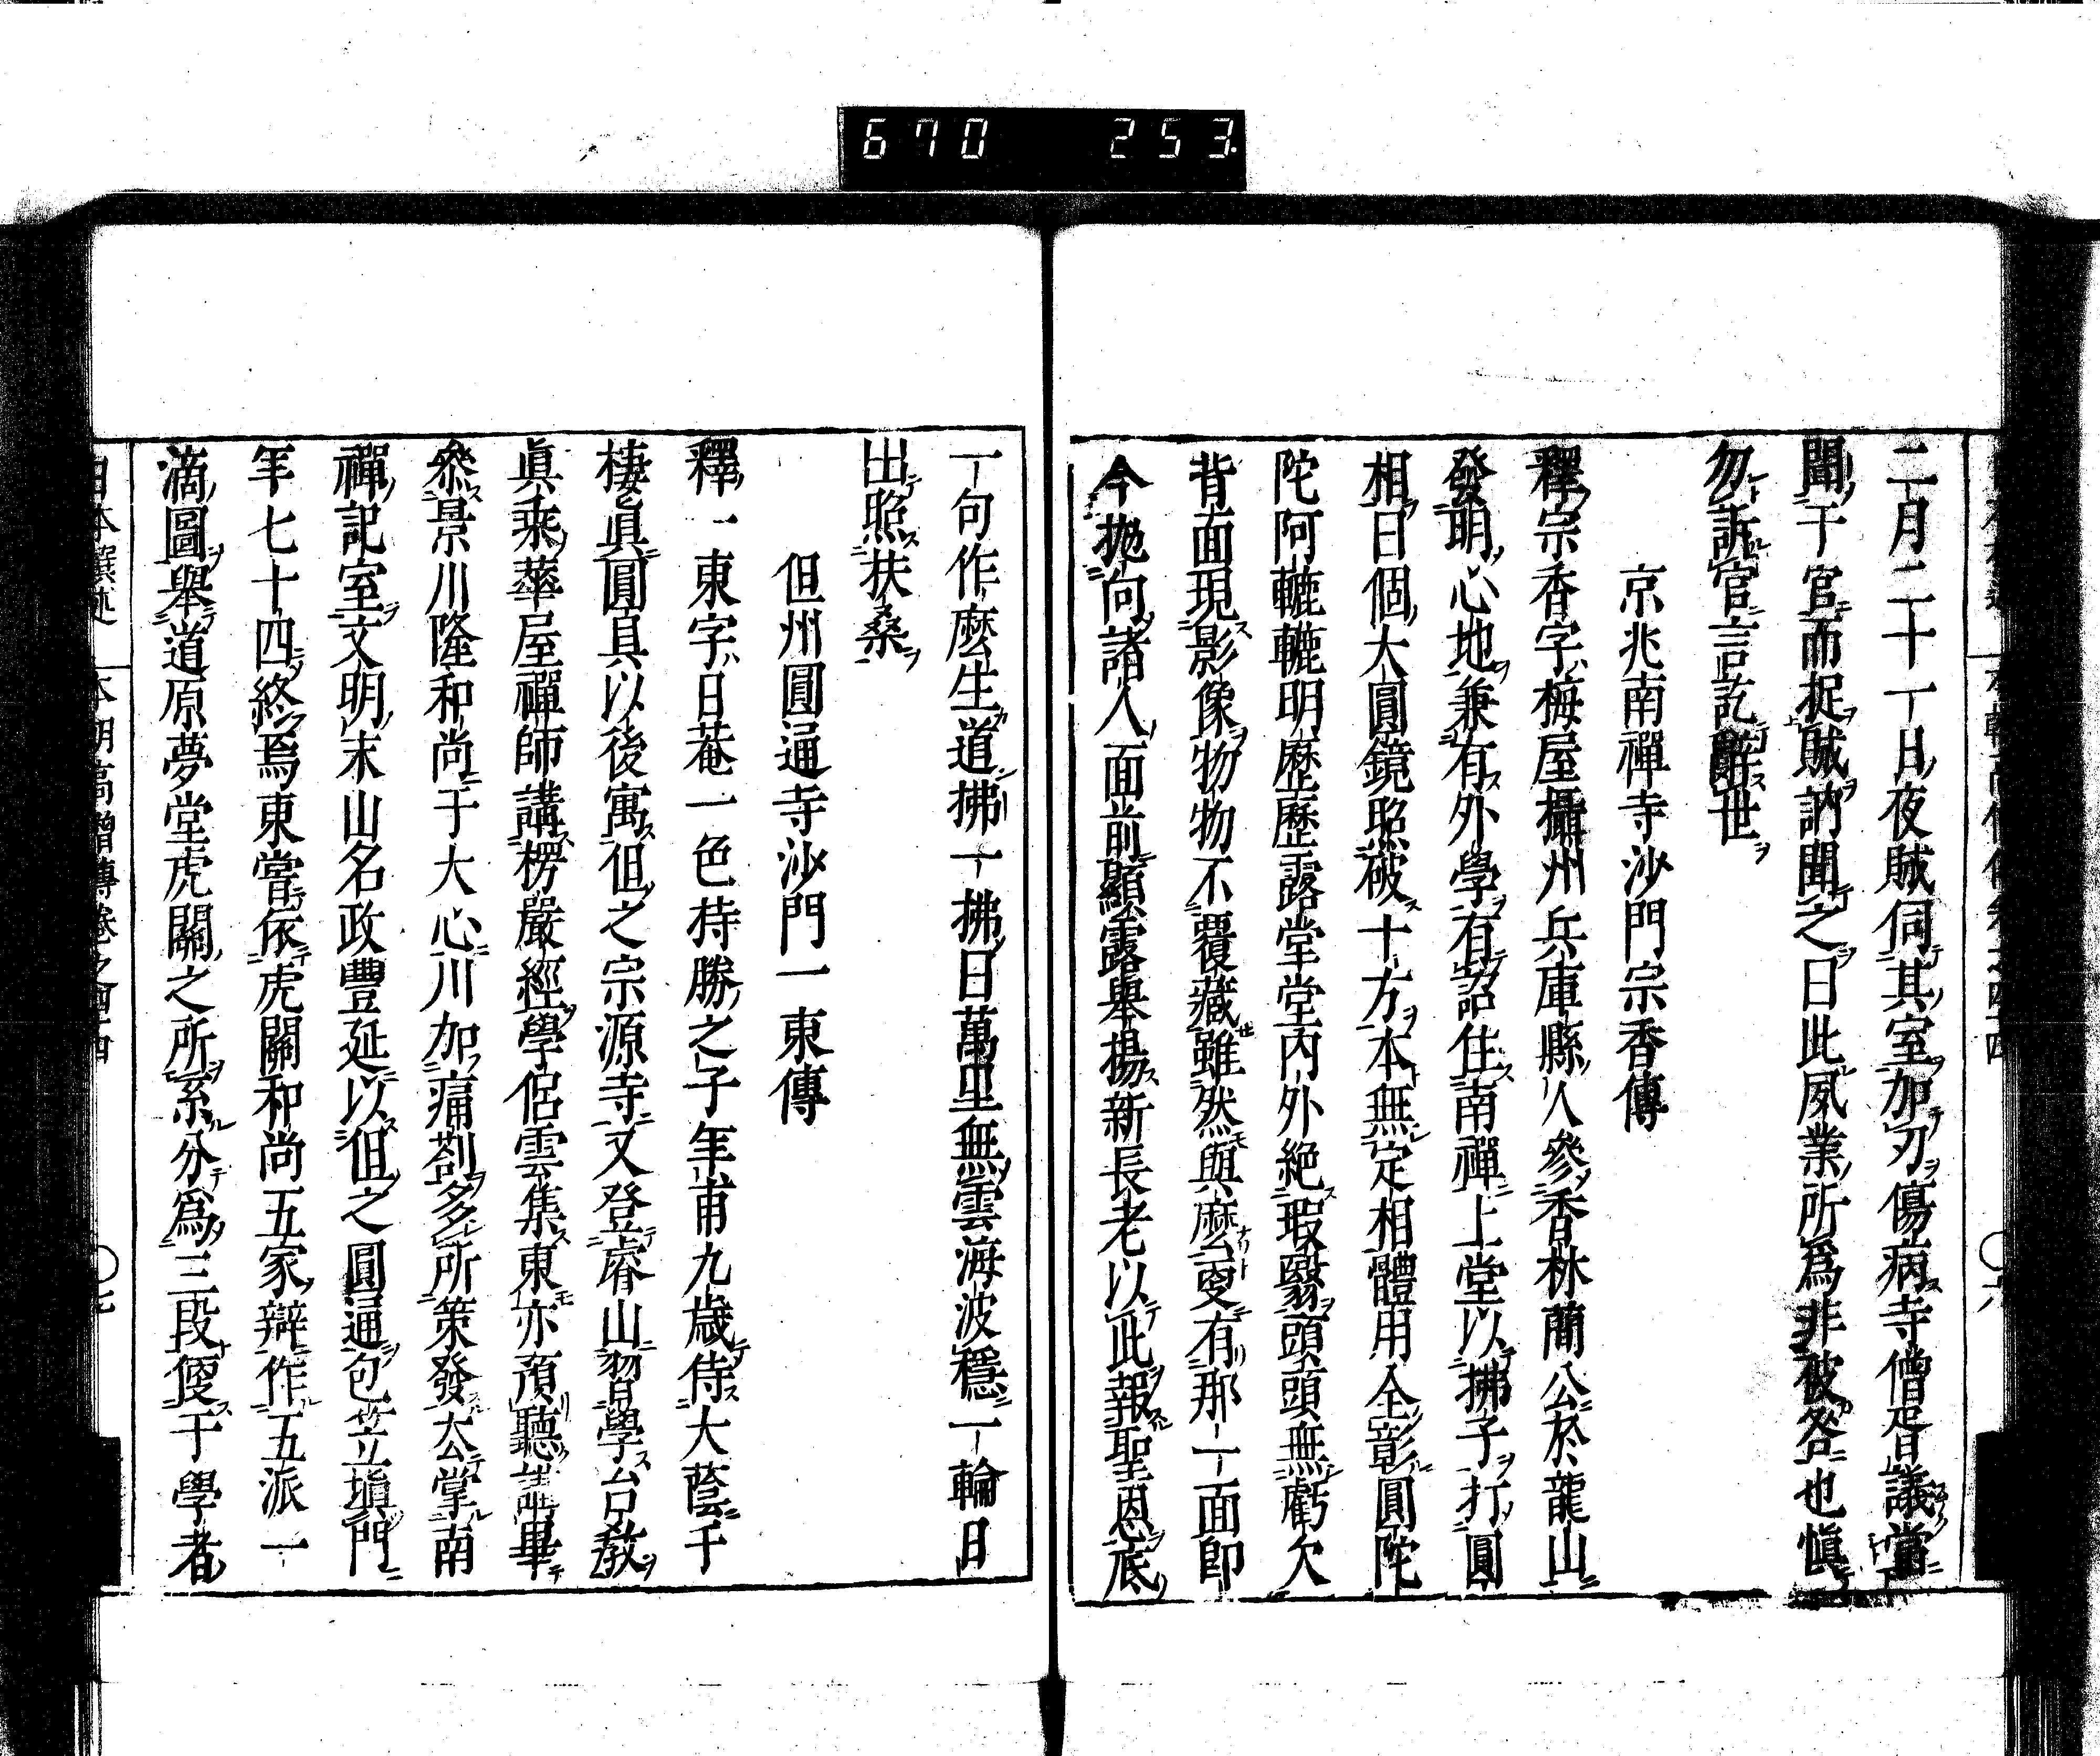 670 253
二月二十一日夜賊伺其室加刃傷病寺僧胥議當
聞于官而捉賊訥聞之曰此夙業所爲非被咎也愼
勿訴官言訖辭世
京兆南禪寺沙門宗香傳
釋宗香字梅屋攝州兵庫縣人參香林蕳公於龍山
發明心地兼有外學有詔住南禪上堂以拂子打圓
相曰個大圓鏡照破十方本無定相體用全彰圓陀
陀阿轆轆明歷歷露堂堂內外絕瑕翳頭頭無虧欠
背面現影像物物不覆藏雖然與麽更有那一面卽
今拋向諸人面前顯露舉揚新長老以此報聖恩底
一句作麽生道拂一拂曰萬里無雲海波穩一輪日
出照扶桑
但州圓通寺沙門一東傳
釋一東字日菴一色持勝之子年甫九歲侍大蔭于
棲眞圓眞以後寓但之宗源寺又登睿山習學台敎
眞乘華屋禪師講楞嚴經學侶雲集東亦預聽講畢
參景川隆和尚于大心川加痛劄多所策發去掌南
禪記室文明末山名政豐延以但之圓通包笠塡門
年七十四終焉東嘗依虎關和尚五家辯作五派一
滴圖舉道原夢堂虎關之所系分爲三段便于學者
日本撰述 本朝高僧傳卷之四十四 〇七